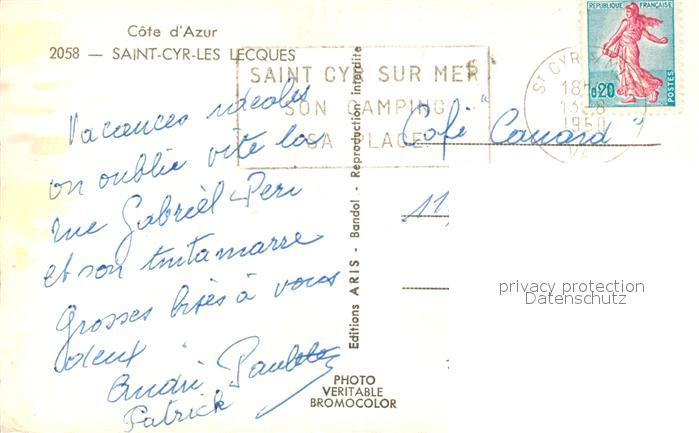 Côte d'Azur
2058 — SAINT-CYR-LES LECQUES
Vacances idéales
on oublie vite la
rue Gabriel Peri
et son tintamarre
Grosses bises à vous
deux
André Paulette
Patrick
Editions ARIS - Bandol - Reproduction interdite
PHOTO
VERITABLE
BROMOCOLOR
SAINT CYR SUR MER
SON CAMPING
SA PLAGE
ST CYR
18
13-8
1960
REPUBLIQUE FRANÇAISE
0,20
POSTES
Café "Canard"
11,
privacy protection
Datenschutz